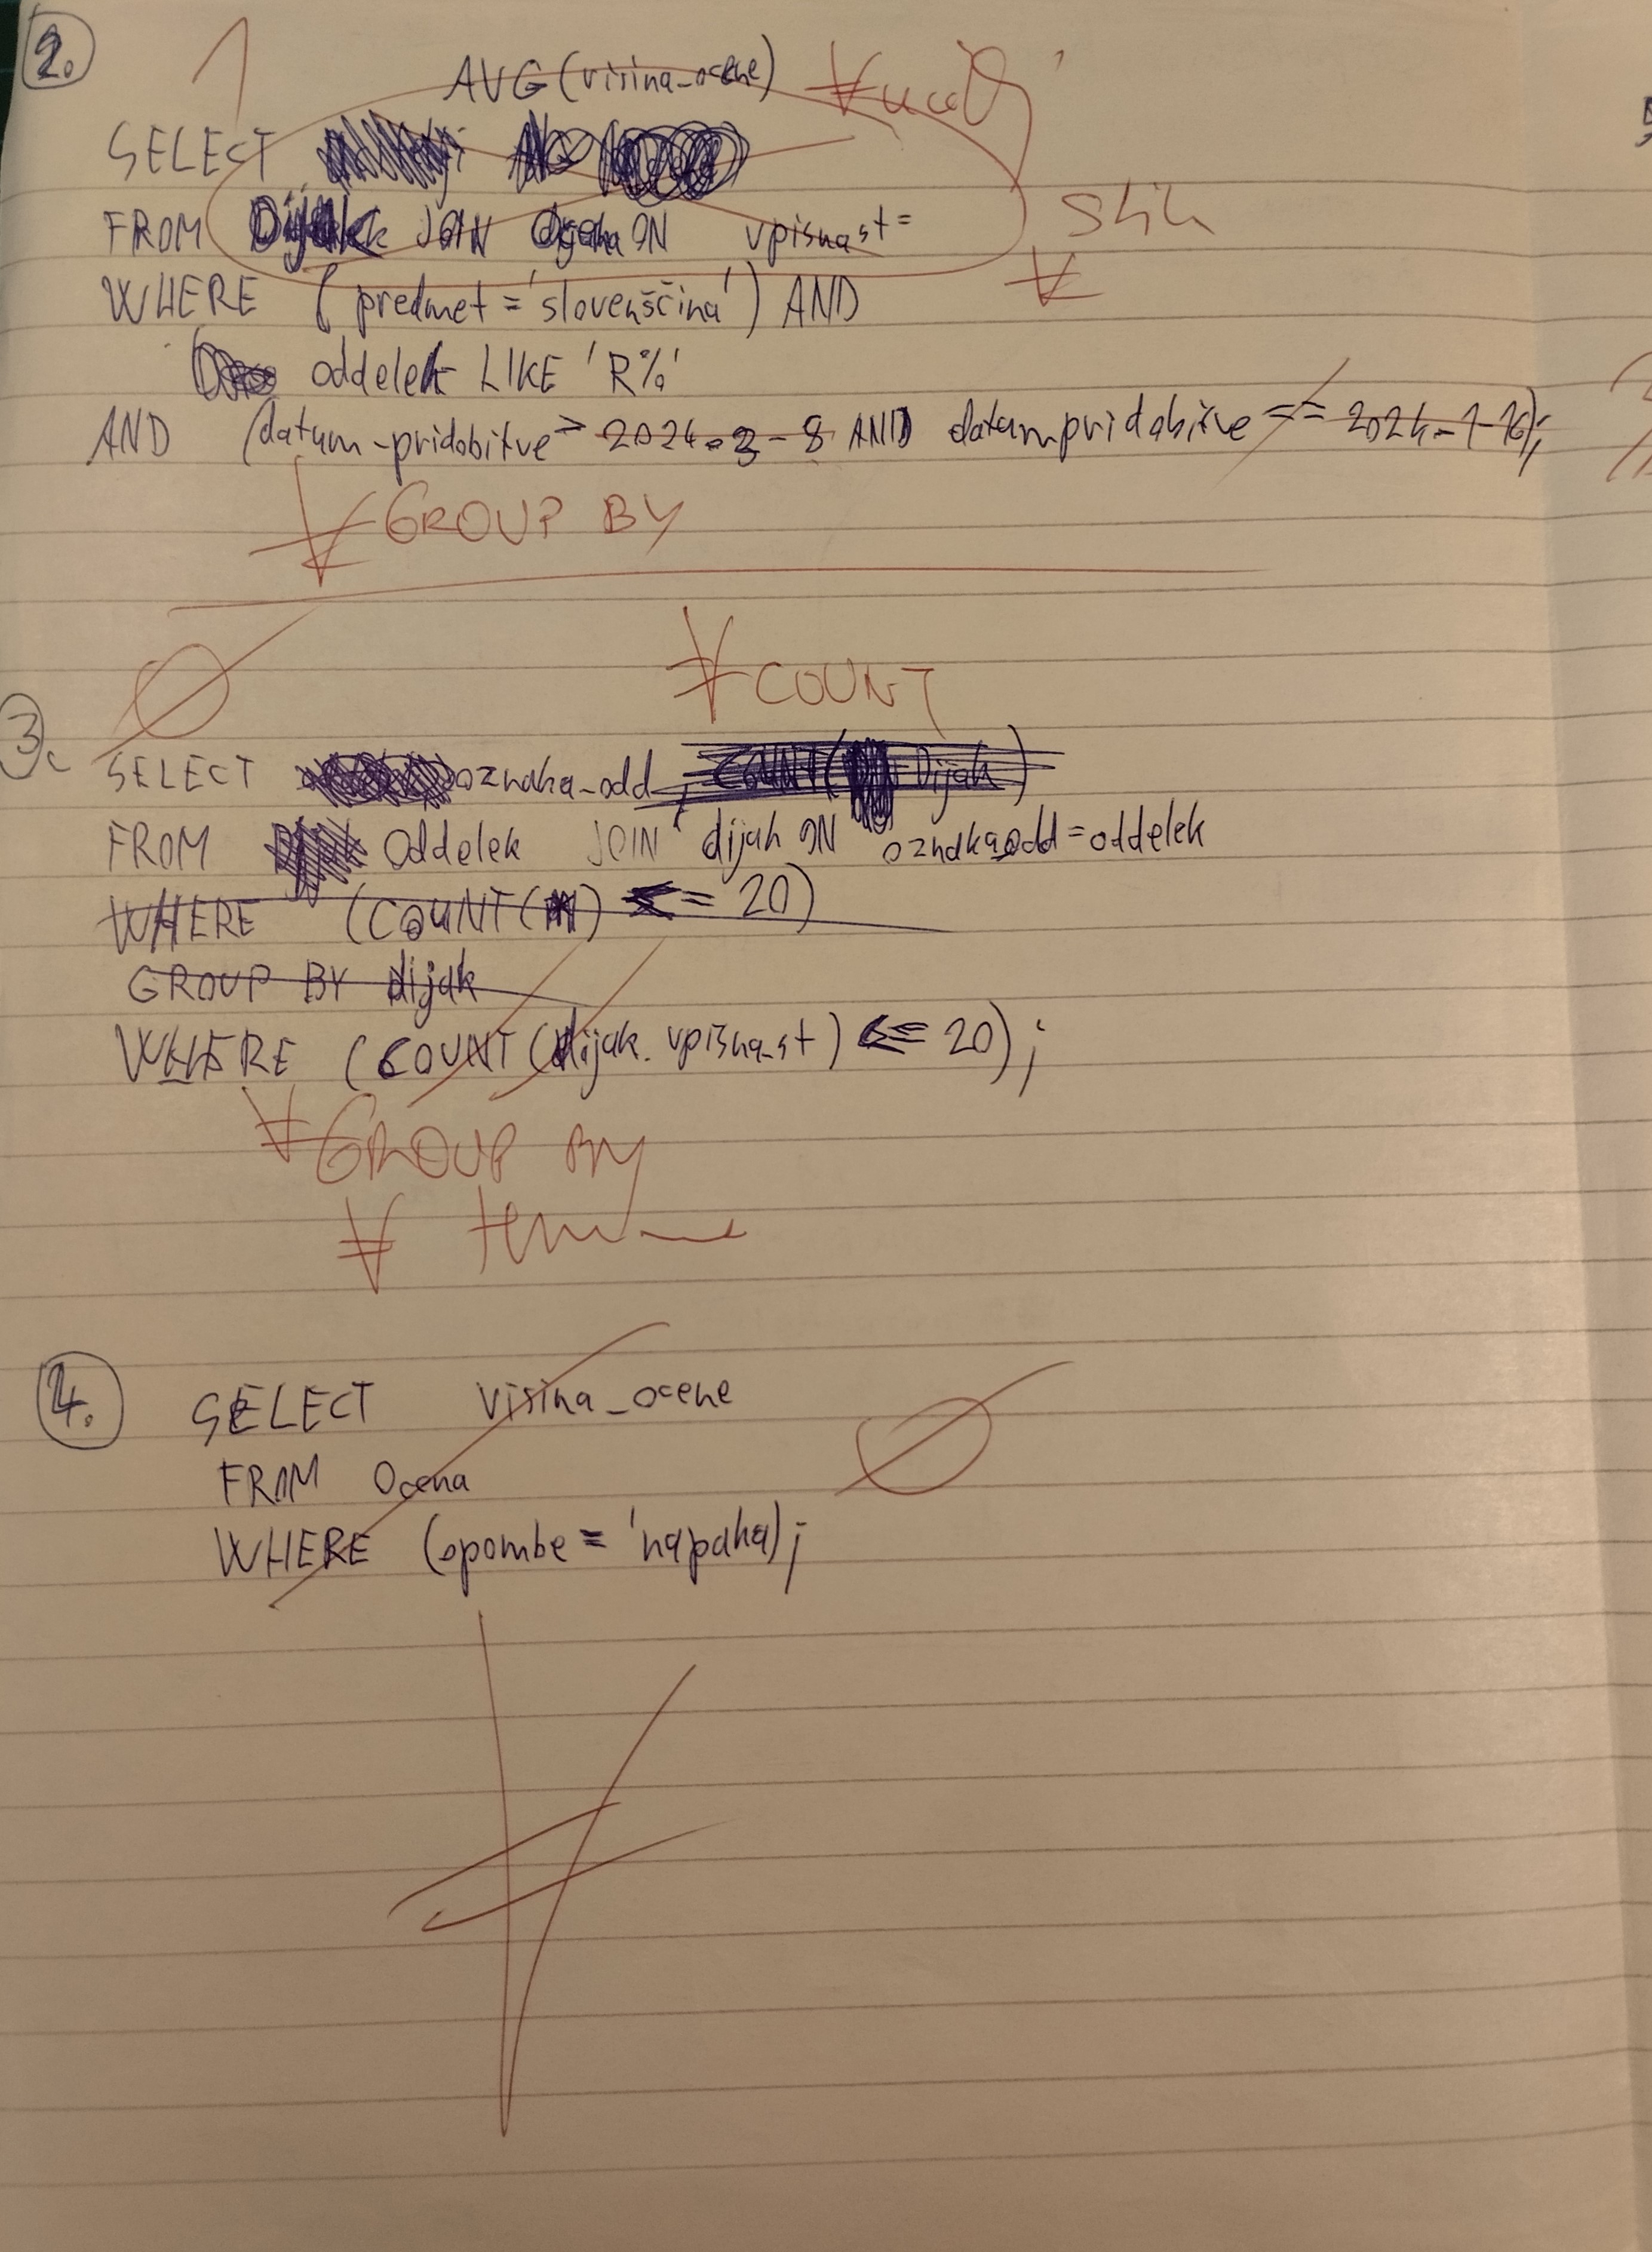 2.
1
AVG(višina_ocene)
SELECT
FROM Dijak JOIN ON vpisna_st =
WHERE (predmet = 'slovenščina') AND
oddelek LIKE 'R%'
AND (datum_pridobitve > 2024-3-8 AND datum pridobitve == 2024-1-16);
GROUP BY
COUNT
3.
SELECT oznaka_odd, COUNT( Dijak)
FROM Oddelek JOIN dijak ON oznaka_odd = oddelek
WHERE (COUNT( ) <= 20)
GROUP BY dijak
WHERE (COUNT(dijak.vpisna_st) <= 20);
GROUP BY
4.
SELECT višina_ocene
FROM Ocena
WHERE (opombe = 'napaka);